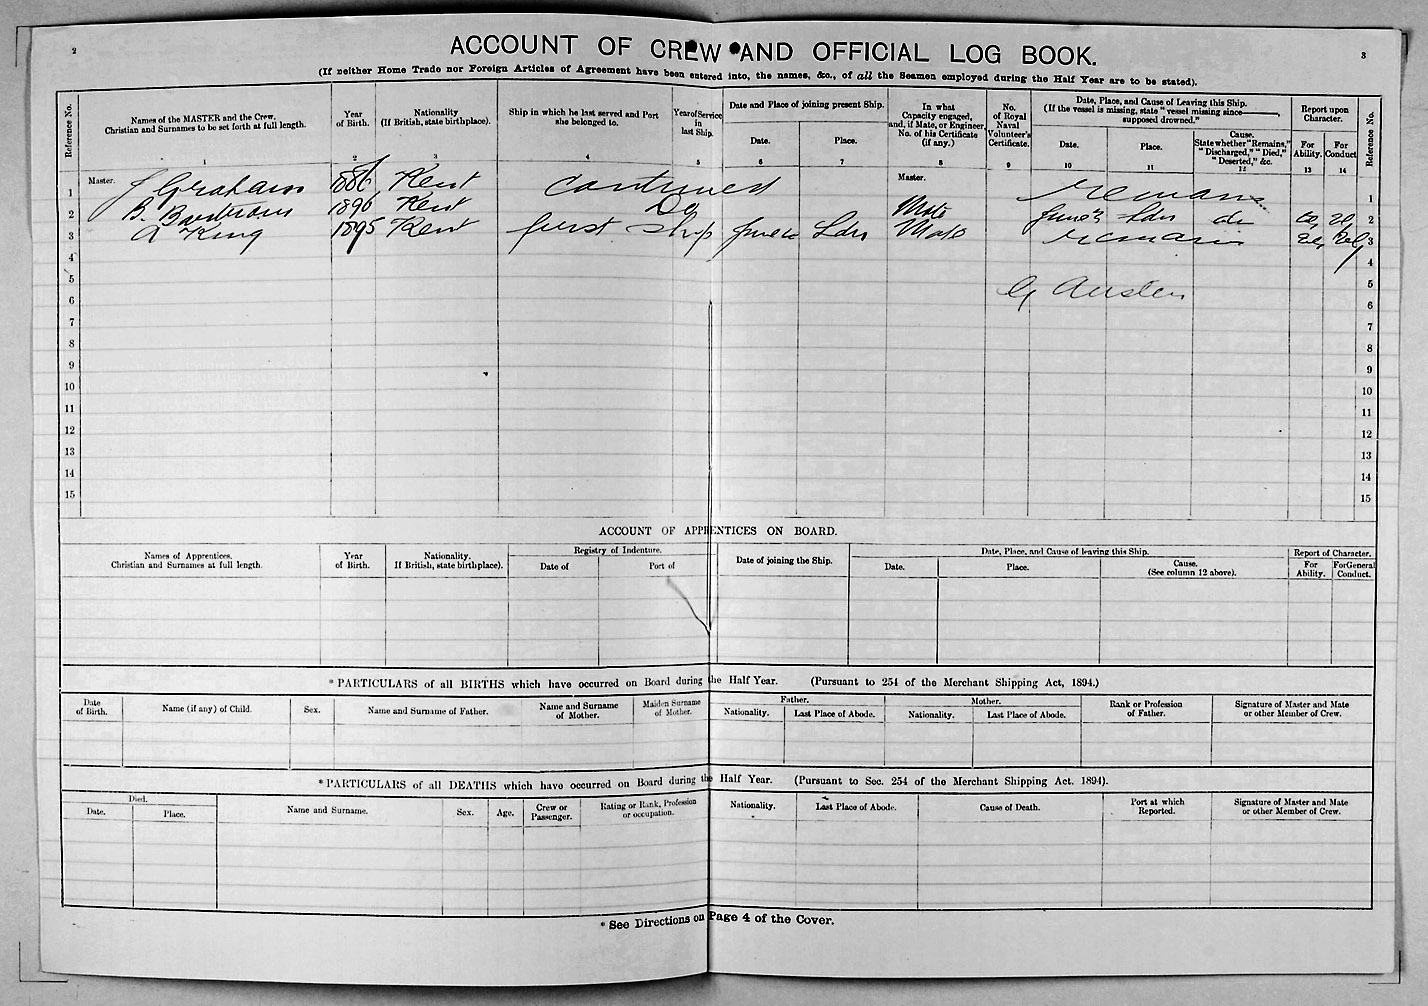 2
3
ACCOUNT OF CREW AND OFFICIAL LOG BOOK.
(If neither Home Trade nor Foreign Articles of Agreement have been entered into, the names, &c., of all the Seamen employed during the Half Year are to be stated).
Reference No.
Names of the MASTER and the Crew.
Christian and Surnames to be set forth at full length.
Year
of Birth.
Nationality
(If British, state birthplace).
Ship in which he last served and Port
she belonged to.
Year of Service
in
last Ship.
Date and Place of joining present Ship.
Date.
Place.
In what
Capacity engaged,
and, if Mate, or Engineer,
No. of his Certificate
(if any.)
No.
of Royal
Naval
Volunteer's
Certificate.
Date, Place, and Cause of Leaving this Ship.
(If the vessel is missing, state "vessel missing since———,
supposed drowned."
Date.
Place.
Cause.
State whether "Remains,"
"Discharged," "Died,"
"Deserted," &c.
Report upon
Character.
For
Ability.
For
Conduct
Reference No.
1 2 3 4 5 6 7 8 9 10 11 12 13 14
1 Master. J Graham 1886 Kent continued Master. remains 1
2 B. 1896 Kent Do Mate Ldn do 2
3 A King 1895 Kent first ship Ldn Mate remains 3
4 4
5 5
G Austen
6 6
7 7
8 8
9 9
10 10
11 11
12 12
13 13
14 14
15 15
ACCOUNT OF APPRENTICES ON BOARD.
Names of Apprentices.
Christian and Surnames at full length.
Year
of Birth.
Nationality.
If British, state birthplace).
Registry of Indenture.
Date of
Port of
Date of joining the Ship.
Date, Place, and Cause of leaving this Ship.
Date.
Place.
Cause.
(See column 12 above).
Report of Character.
For
Ability.
For General
Conduct.
*PARTICULARS of all BIRTHS which have occurred on Board during the Half Year. (Pursuant to 254 of the Merchant Shipping Act, 1894.)
Date
of Birth.
Name (if any) of Child.
Sex.
Name and Surname of Father.
Name and Surname
of Mother.
Maiden Surname
of Mother.
Father.
Nationality.
Last Place of Abode.
Mother.
Nationality.
Last Place of Abode.
Rank or Profession
of Father.
Signature of Master and Mate
or other Member of Crew.
*PARTICULARS of all DEATHS which have occurred on Board during the Half Year. (Pursuant to Sec. 254 of the Merchant Shipping Act. 1894).
Died.
Date.
Place.
Name and Surname.
Sex.
Age.
Crew or
Passenger.
Rating or Rank, Profession
or occupation.
Nationality.
Last Place of Abode.
Cause of Death.
Port at which
Reported.
Signature of Master and Mate
or other Member of Crew.
* See Directions on Page 4 of the Cover.